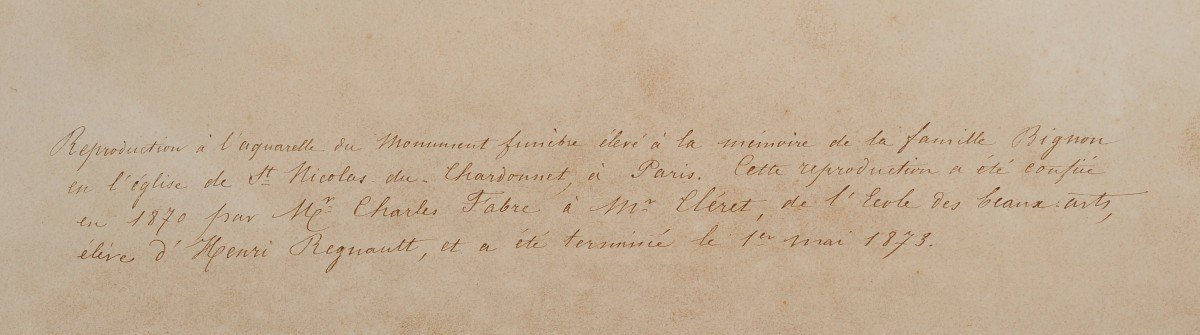 Reproduction à l'aquarelle du Monument funèbre élevé à la mémoire de la famille Bignon
en l'église de St Nicolas du-Chardonnet, à Paris. Cette reproduction a été confiée
en 1870 par Mr Charles Fabre à Mr Cléret, de l'Ecole des beaux-arts,
élève d'Henri Regnault, et a été terminée le 1er mai 1873.